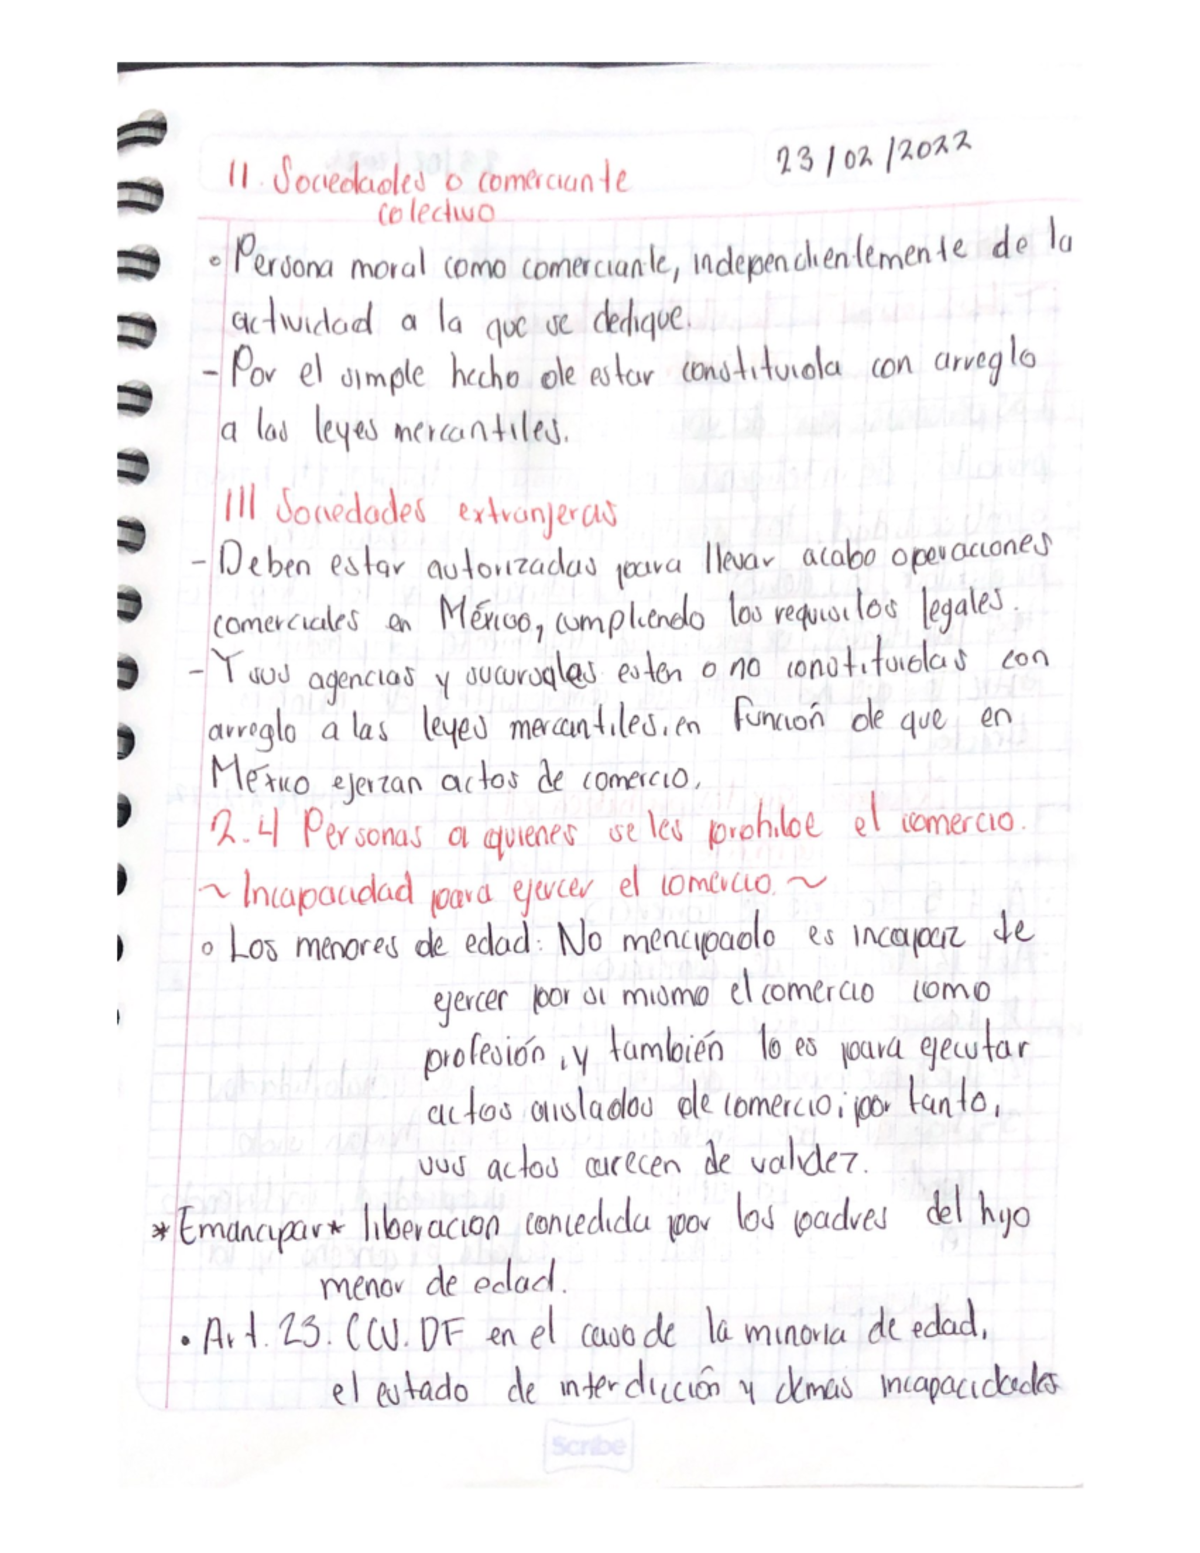 23/02/2022
II. Sociedades o comerciante
colectivo
Persona moral como comerciante, independientemente de la
actividad a la que se dedique.
- Por el simple hecho de estar constituida con arreglo
a las leyes mercantiles.
III Sociedades extranjeras
- Deben estar autorizadas para llevar acabo operaciones
comerciales en México, cumpliendo los requisitos legales.
- Y sus agencias y sucursales esten o no constituidas con
arreglo a las leyes mercantiles, en función de que en
México ejerzan actos de comercio.
2.4 Personas a quienes se les prohibe el comercio.
~ Incapacidad para ejercer el comercio. ~
Los menores de edad: No mencipado es incapaz de
ejercer por si mismo el comercio como
profesión, y también lo es para ejecutar
actos aislados de comercio; por tanto,
sus actos carecen de validez.
*Emancipar* liberación concedida por los padres del hijo
menor de edad.
• Art. 23. CCV. DF en el caso de la minoria de edad,
el estado de interdicción y demás incapacidades
Scribe